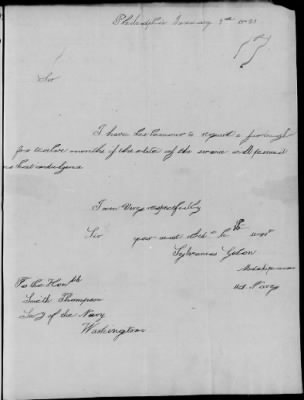 Philadelphia January 2nd
Sir
I have the honour to request a furlough
for twelve months if the state of the service will permit
such indulgence
I am Very respectfully
Sir your most Obdt
Sylvanus Godon
Midshipman
To the Honble
Smith Thompson
Secy of the Navy
Washington
US Navy